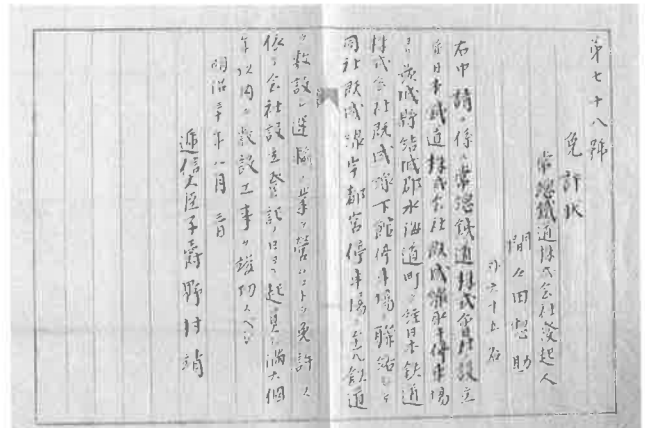 第七十八號
免許狀
常總鐵道株式会社発起人
間々田惣助
外六十五名
右申請ニ係ル常總鐵道株式会社設立
日本鐵道株式会社既成線 停車場
ヨリ茨城縣結城郡水海道町ヲ経日本鉄道
株式会社既成線下館停車場ニ聯絡シ
同社既成線宇都宮停車場ニ至ル鉄道
ヲ敷設シ運輸ノ業ヲ営ムコトヲ免許ス
依テ会社設立登記ノ日ヨリ起算シ満六個
年以内ニ敷設工事ヲ竣功スヘシ
明治三十年八月三日
逓信大臣子爵野村靖